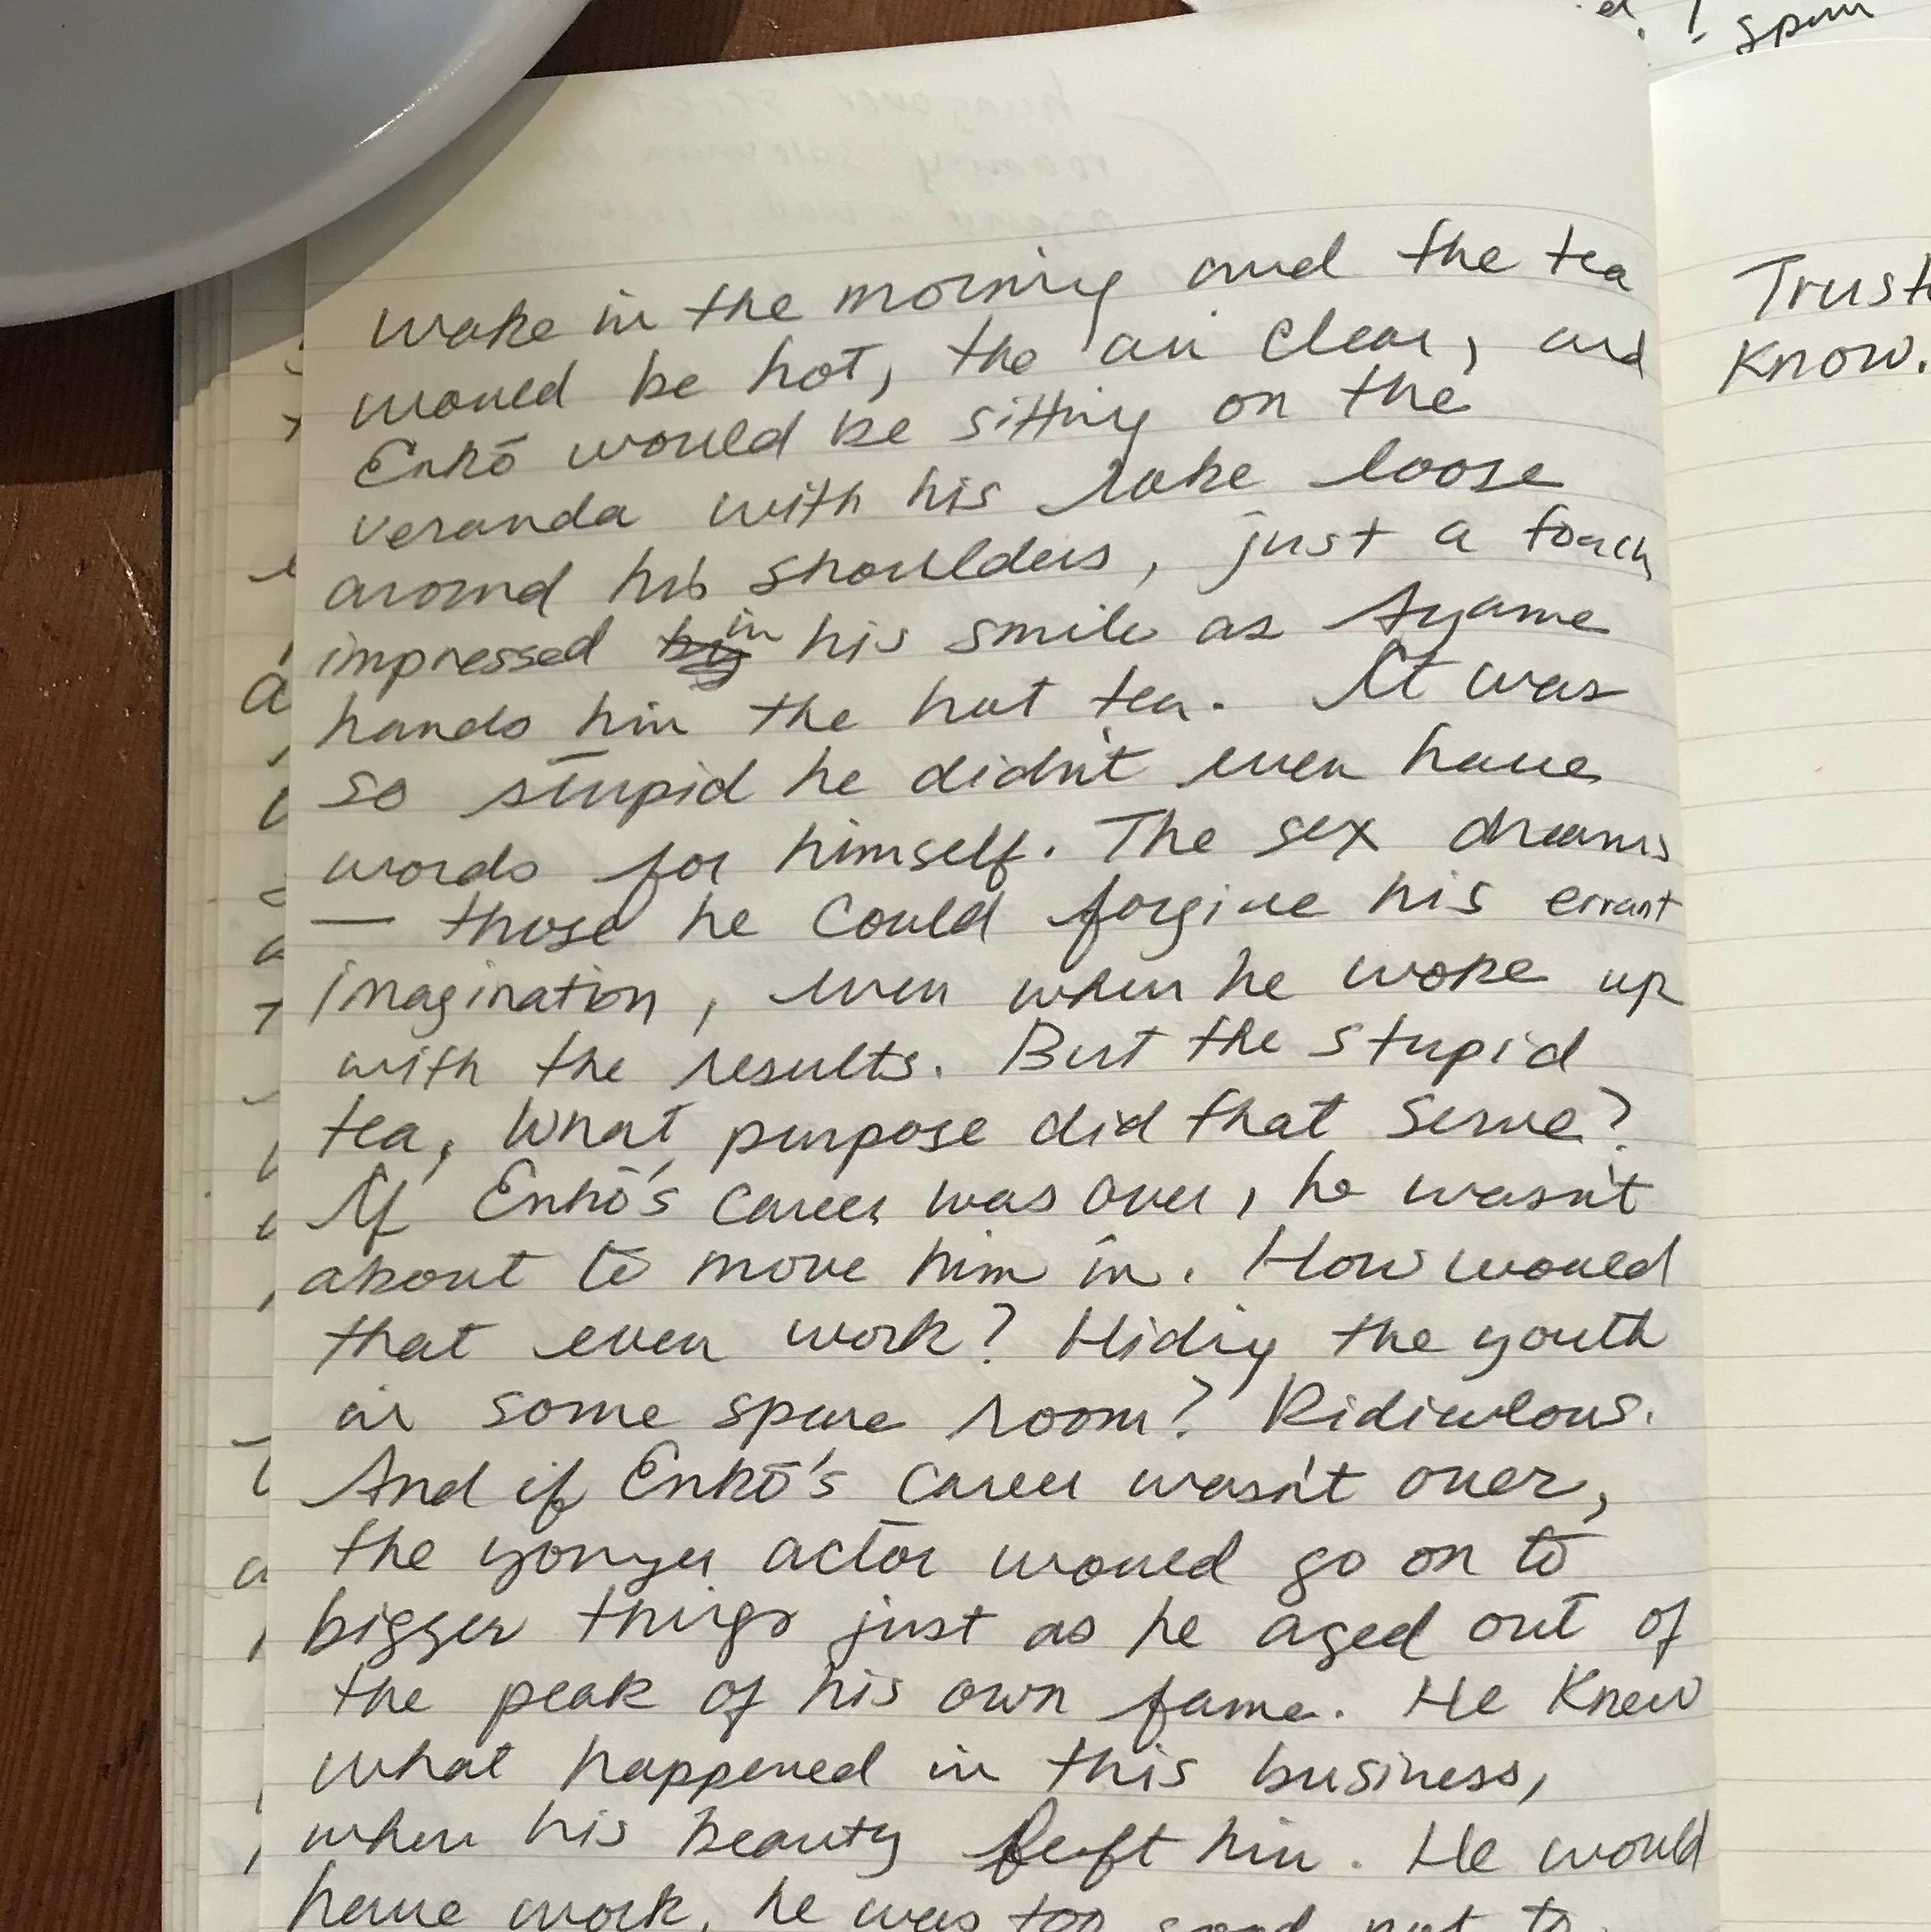 wake in the morning and the tea
would be hot, the air clear, and
Enkō would be sitting on the
veranda with his robe loose
around his shoulders, just a touch
impressed by in his smile as Ayame
hands him the hot tea. It was
so stupid he didn't even have
words for himself. The sex dreams
— those he could forgive his errant
imagination, even when he woke up
with the results. But the stupid
tea, what purpose did that serve?
If Enkō's career was over, he wasn't
about to move him in. How would
that even work? Hiding the youth
in some spare room? Ridiculous.
And if Enkō's career wasn't over,
the younger actor would go on to
bigger things just as he aged out of
the peak of his own fame. He knew
what happened in this business,
when his beauty left him. He would
have work, he was too good not to
spun
Trust
Know.